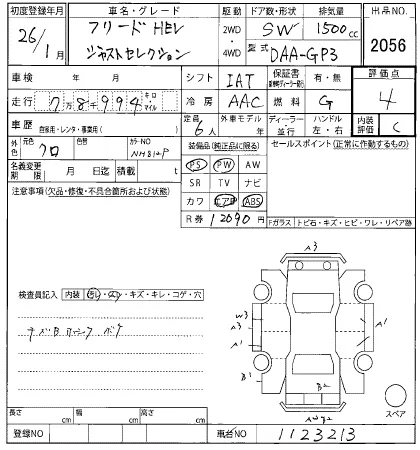 初度登録年月 車名・グレード 駆動 ドア数・形状 排気量 出品NO.
26年 1月 フリード HEV 2WD・4WD SW 1500cc 2056
ジャストセレクション 型式 DAA-GP3
車検 年 月 シフト IAT 保証書 有・無 評価点
走行 7万8千994 キロ・マイル 冷房 AAC 燃料 G 4
車歴 自家用・レンタ・事業用( ) 定員 6人 外車モデル 年 ディーラー・並行 ハンドル 左・右 内装評価 C
外色 元色 クロ 色替 カラーNO NH812P 装備品(純正品に限る) セールスポイント(正常に作動するもの)
PS PW AW
名義変更期限 月 日迄 積載 t SR TV ナビ
注意事項(欠品・修復・不具合箇所および状態) カワ エアB ABS
R券 12090円 Fガラス トビ石・キズ・ヒビ・ワレ・リペア跡
A3
検査員記入 内装 汚れ・スレ・キズ・キレ・コゲ・穴
W3
A3
A1
A1
B1
B2
スペア
長さ cm 幅 cm 高さ cm
登録NO 車台NO 1123213